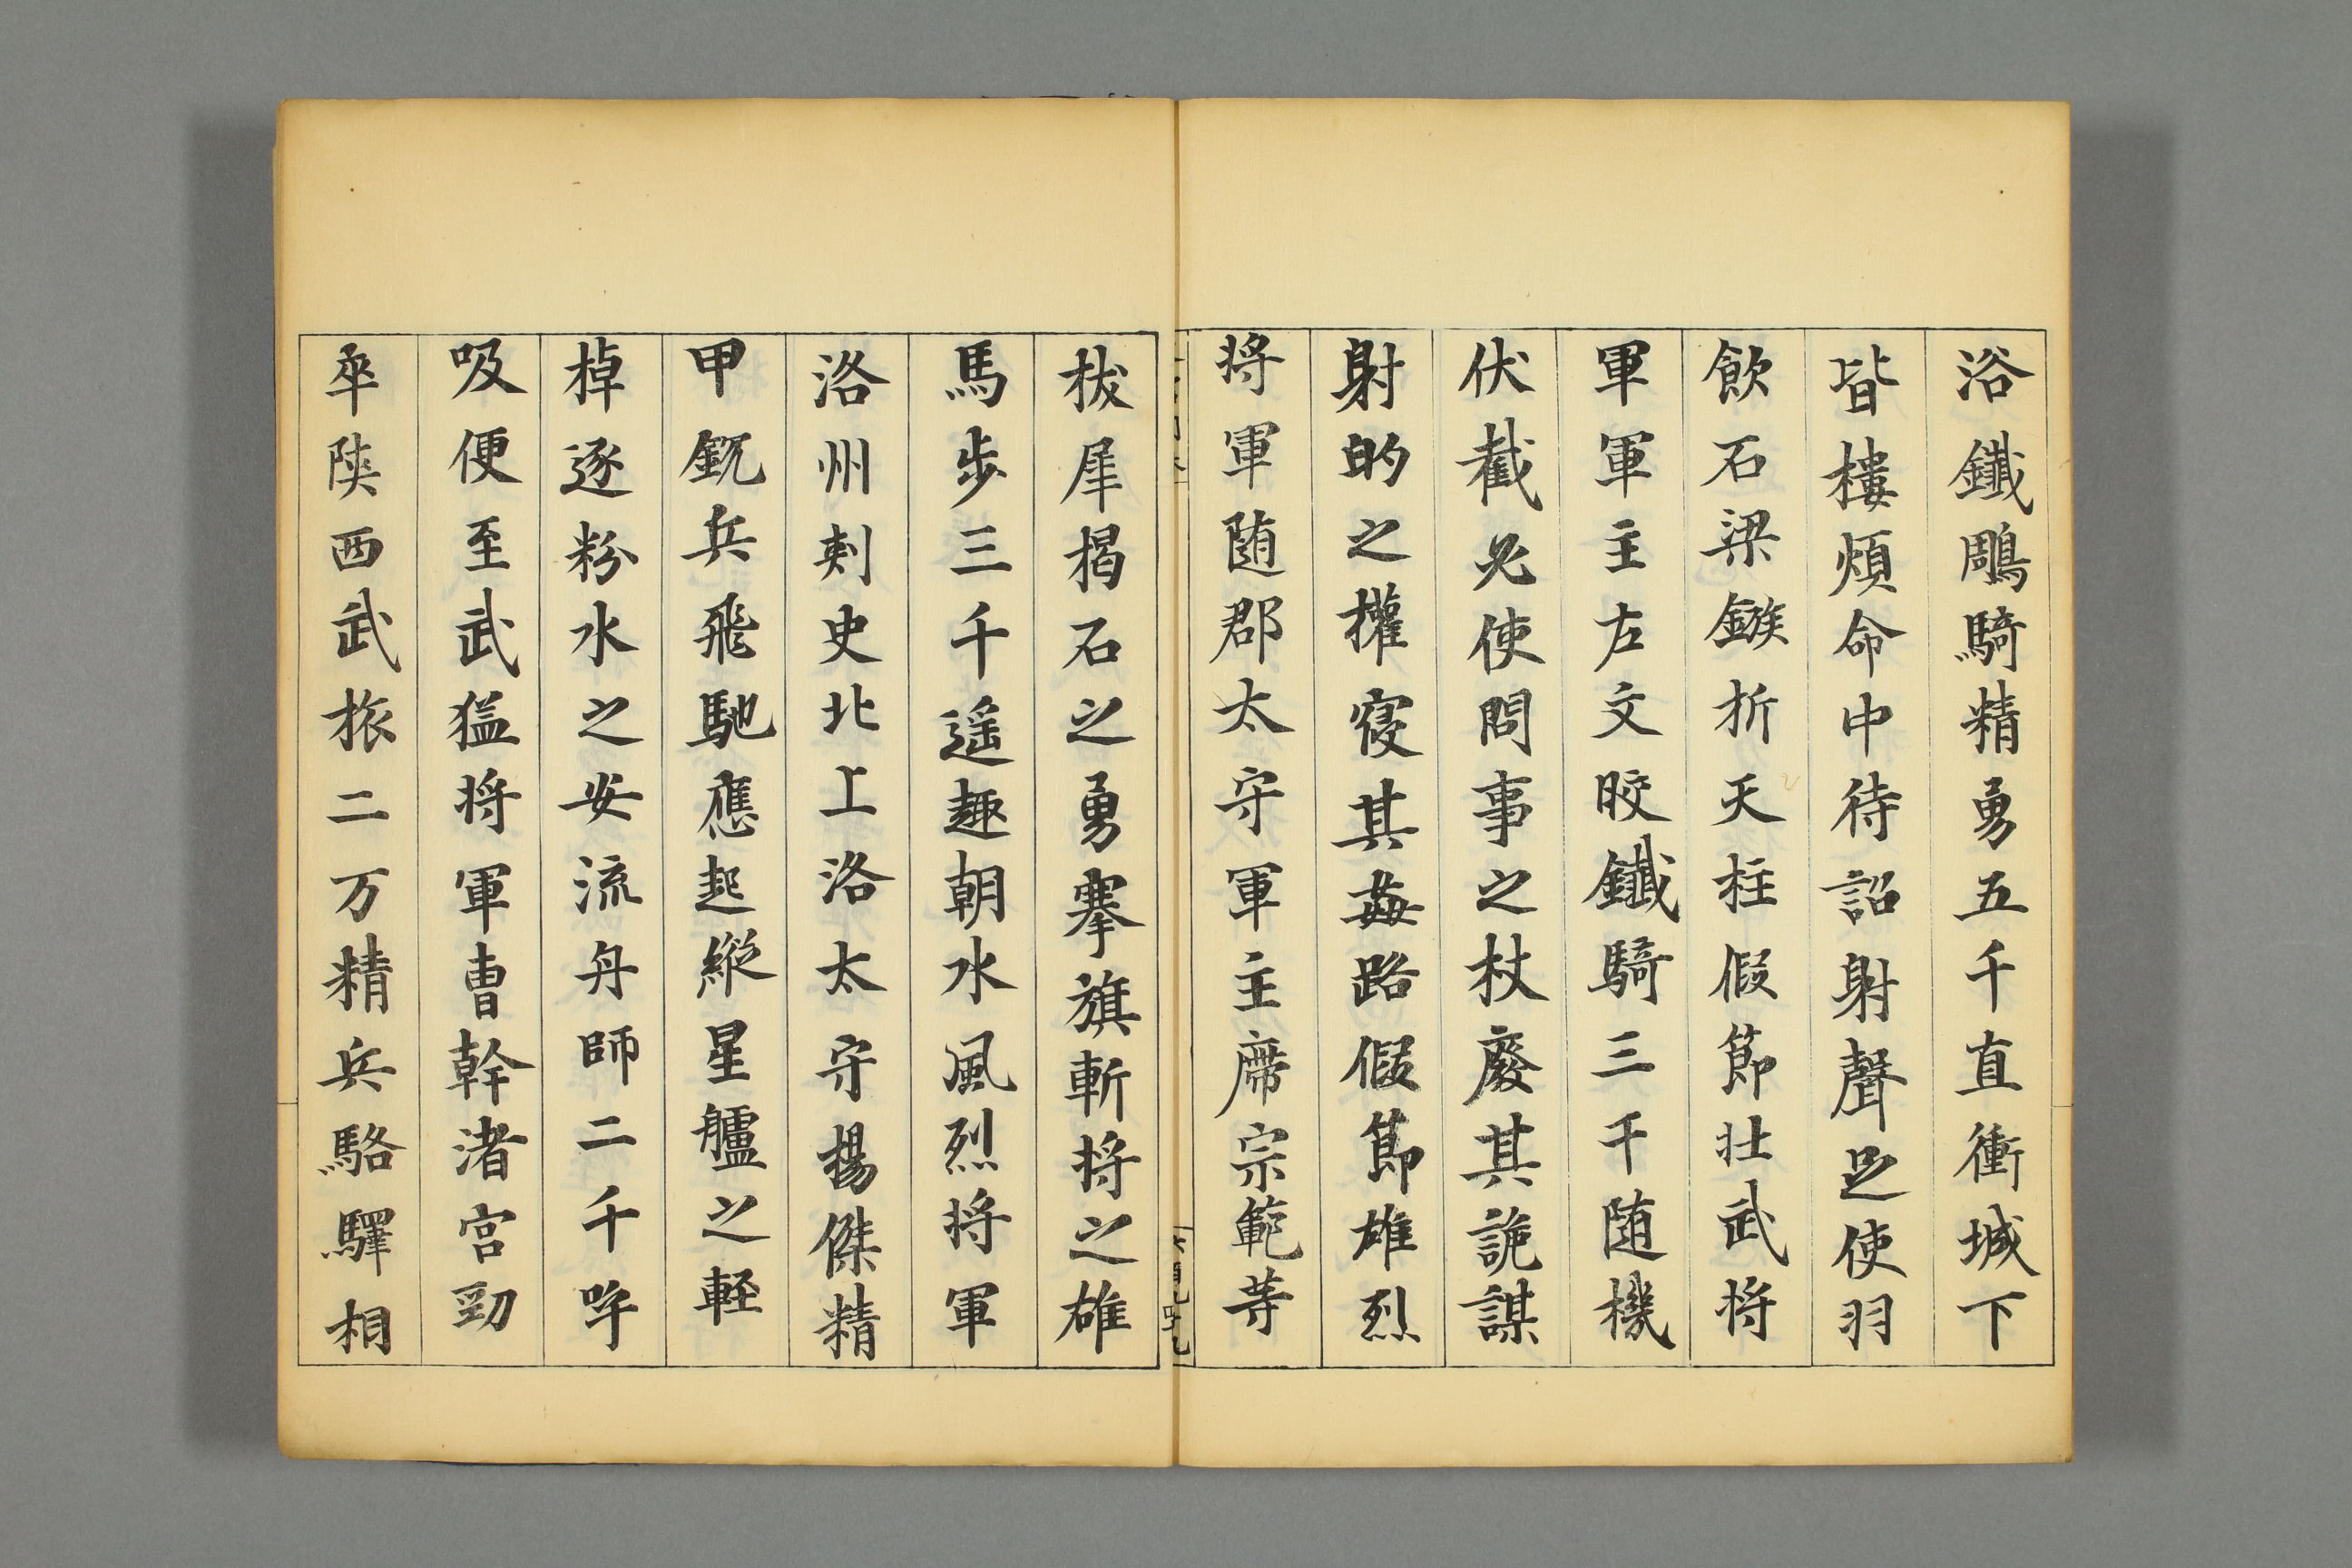 浴鐵鵰騎精勇五千直衝城下
皆樓煩命中待詔射聲足使羽
飲石梁鏃折天柱假節壮武将
軍軍主左文晈鐵騎三千随機
伏截必使問事之杖廢其詭謀
射的之權寢其姦路假節雄烈
将軍随郡太守軍主席宗範等
拔犀揭石之勇搴旗斬将之雄
馬步三千遥趣朝水風烈将軍
洛州刺史北上洛太守揚傑精
甲銳兵飛馳應起縱星艫之輕
棹逐粉水之安流舟師二千呼
吸便至武猛将軍曹幹渚宮勁
卒陝西武旅二万精兵駱驛相